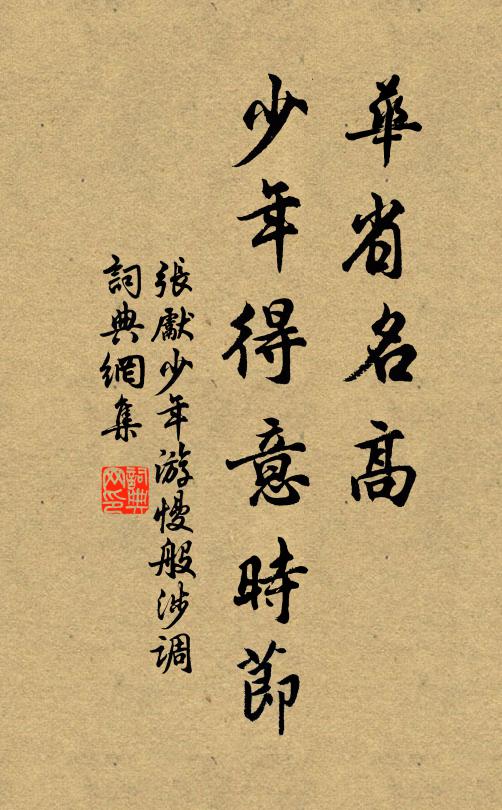 華省名高
少年得意時節
張獻少年游慢般涉調
詞典網集
詞典網印